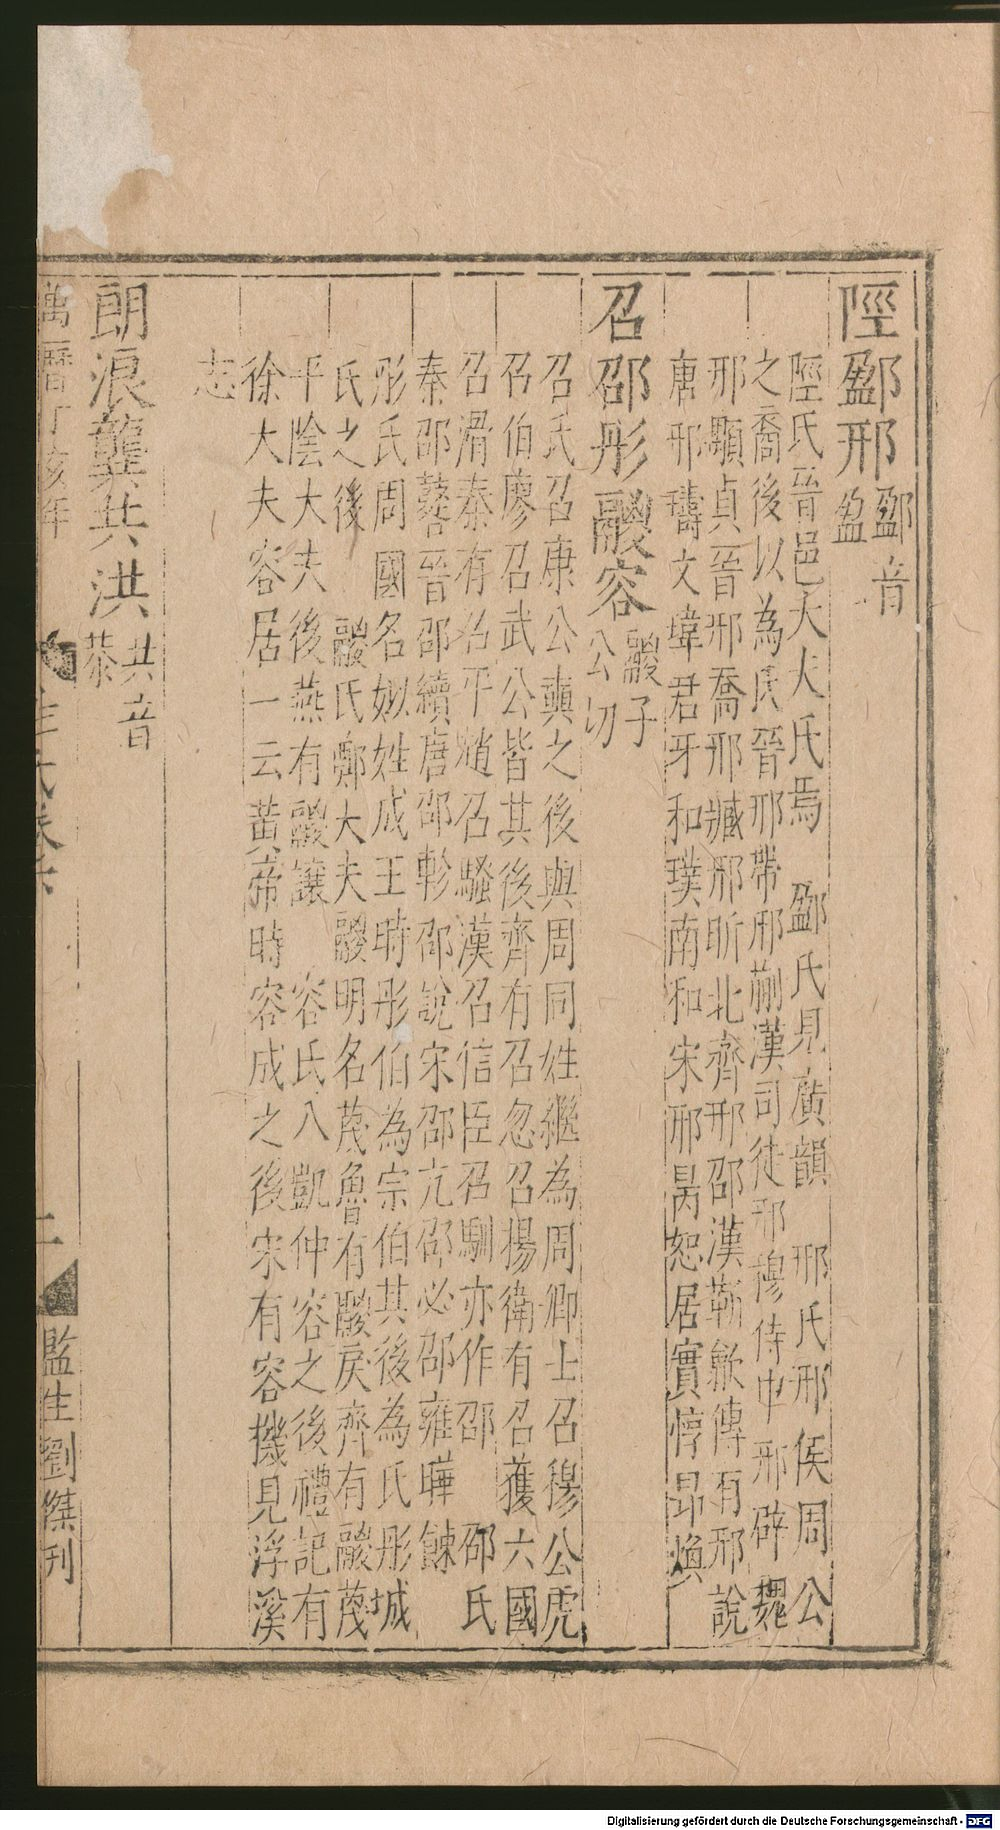 陘酃邢酃音盈
陘氏晉邑大夫氏焉　酃氏見廣韻　邢氏邢侯周公
之裔後以為氏晉邢帶邢蒯漢司徒邢穆侍中邢辟魏
邢顒貞晉邢喬邢臧邢昕北齊邢邵漢靳歙傳有邢說
唐邢璹文偉君牙和璞南和宋邢昺恕居實惇昻煥
召邵彤鬷容鬷子公切
召氏召康公奭之後與周同姓繼為周卿士召穆公虎
召伯廖召武公皆其後齊有召忽召揚衛有召獲六國
召滑秦有召平趙召騷漢召信臣召馴亦作邵　邵氏
秦邵蕃晉邵續唐邵軫邵說宋邵亢邵必邵雍曄餗
彤氏周國名姒姓成王時彤伯為宗伯其後為氏彤城
氏之後　鬷氏鄭大夫鬷明名蔑魯有鬷戾齊有鬷蔑
平陰大夫後燕有鬷讓　容氏八凱仲容之後禮記有
徐大夫容居一云黃帝時容成之後宋有容機見浮溪
志
朗浪龔共洪共音恭
萬曆丁亥年
姓氏卷六
二
監生劉傑刊
Digitalisierung gefördert durch die Deutsche Forschungsgemeinschaft - DFG